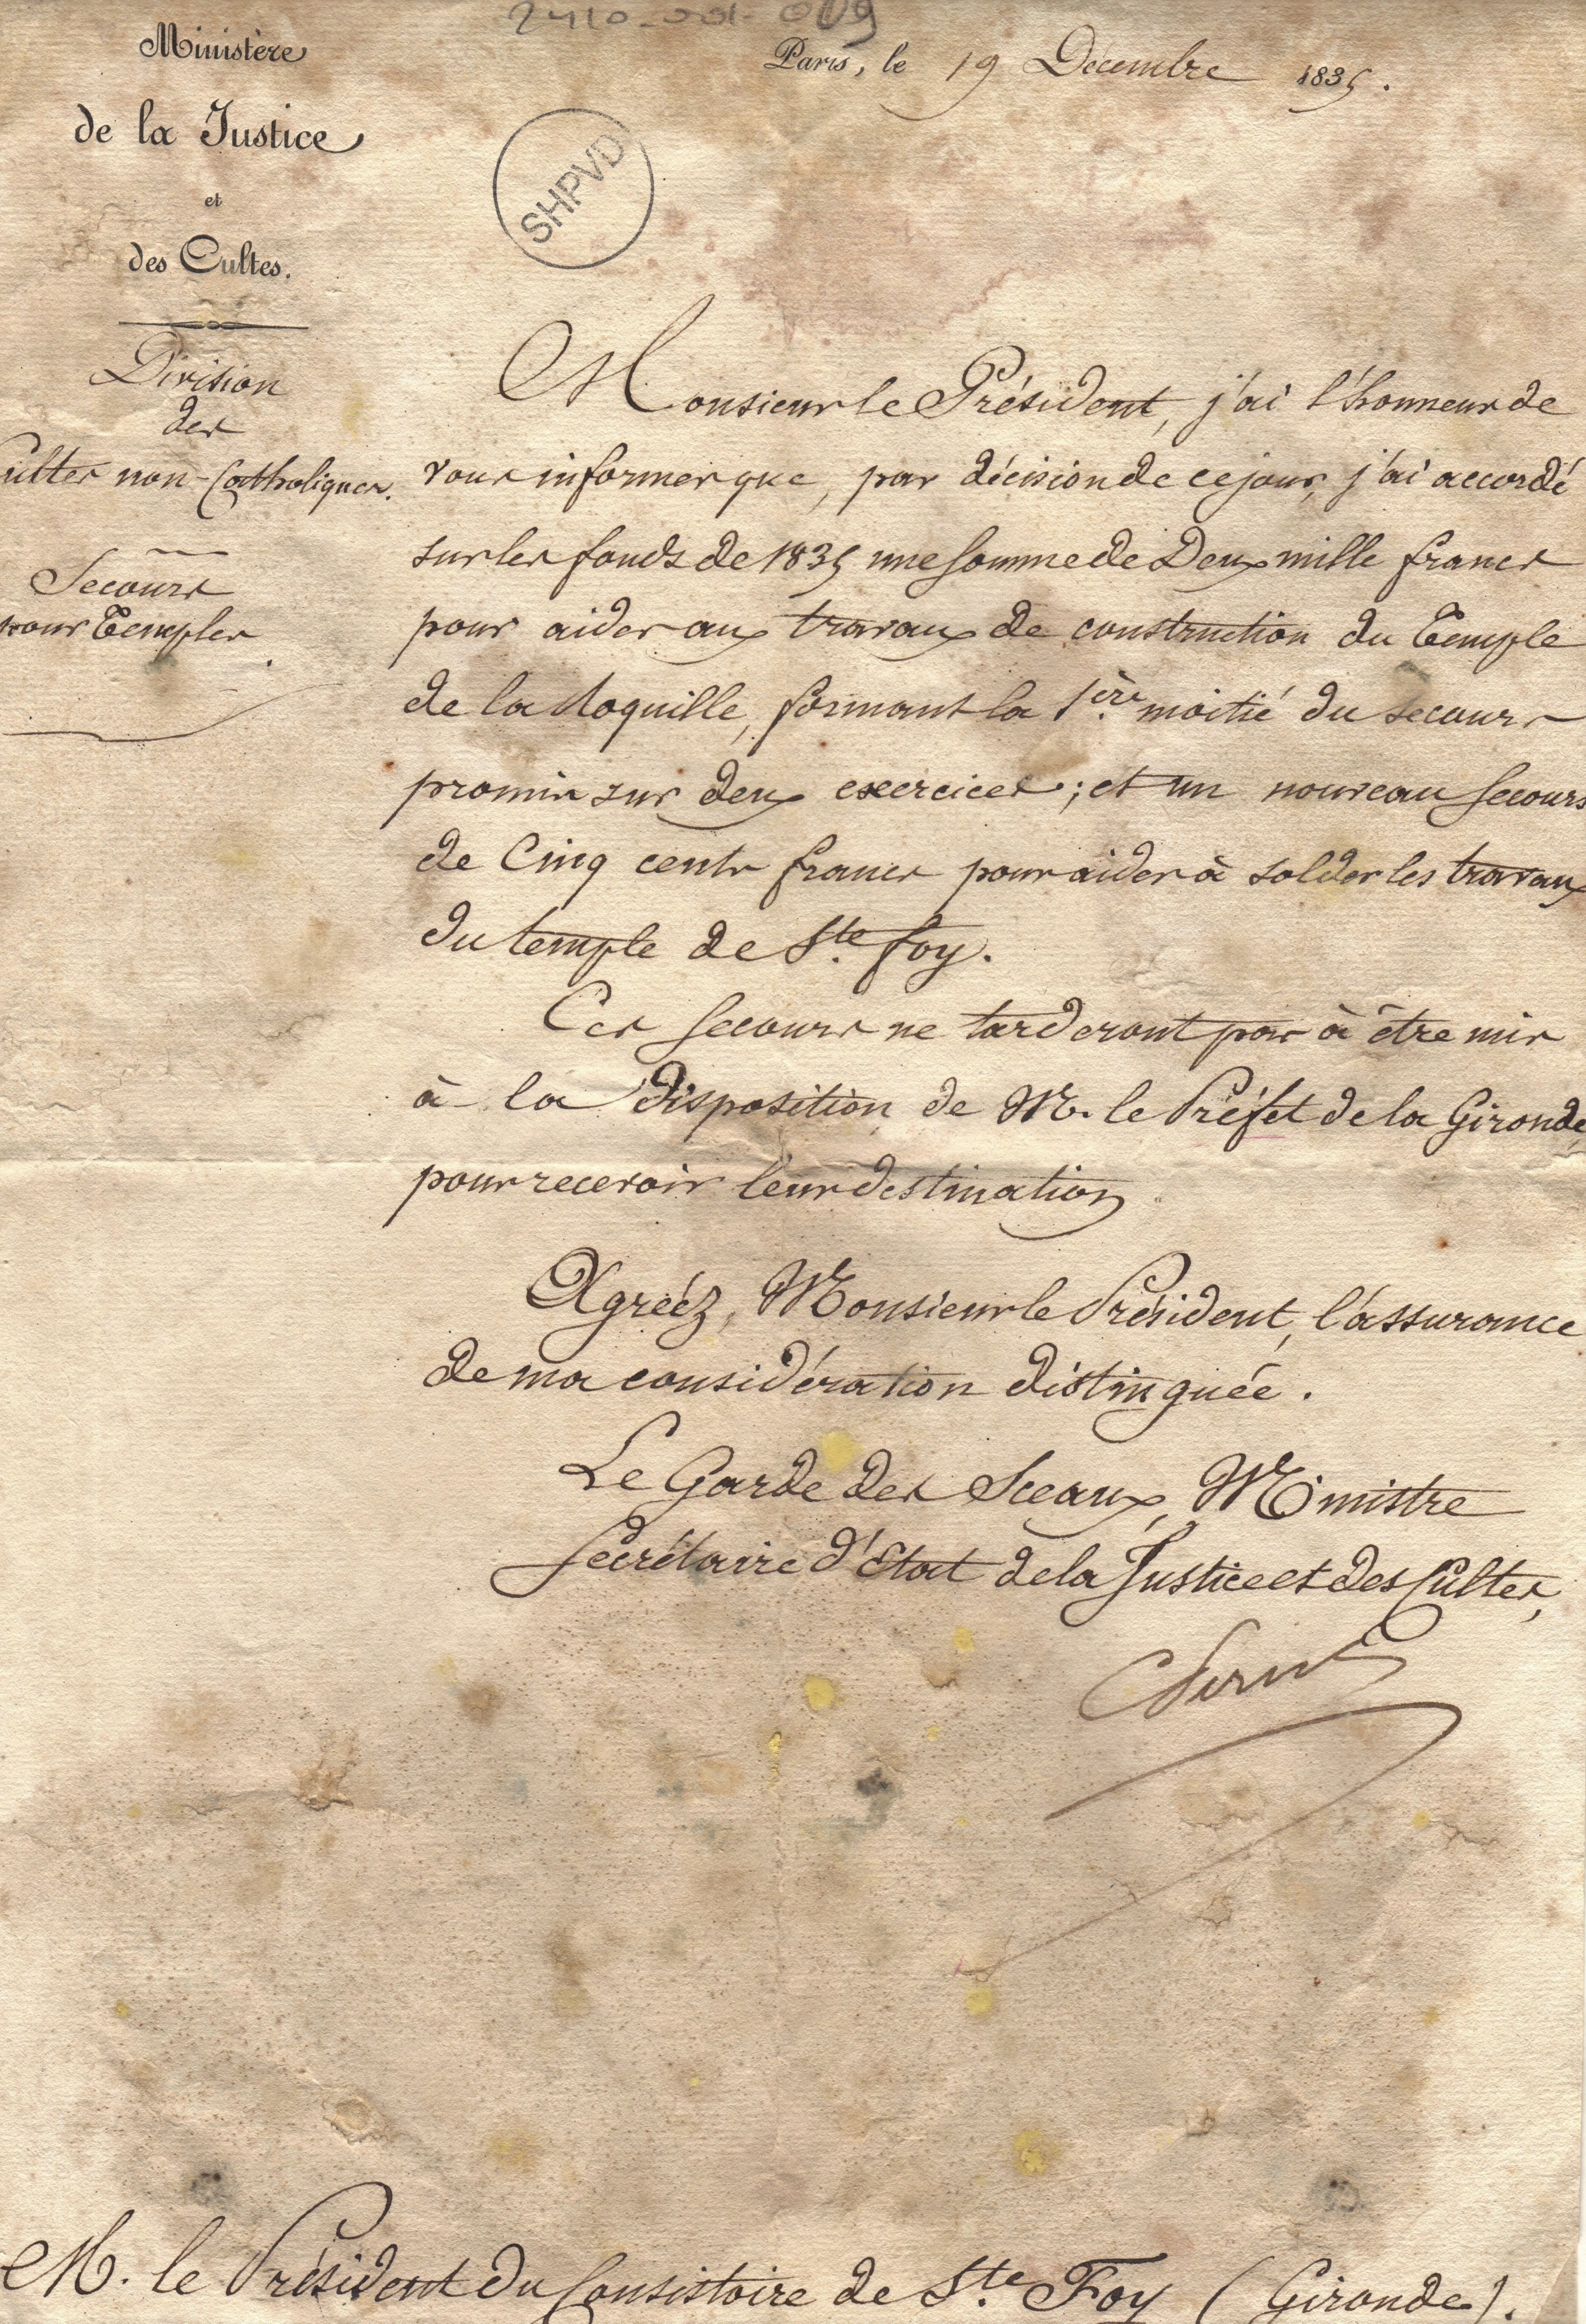 2410-001-009
Ministère
de la Justice
et
des Cultes.
Paris, le 19 Décembre 1835.
SHPVD
Division
des
Cultes non-Catholiques.
Secours
pour Temples
Monsieur le Président, j'ai l'honneur de
vous informer que, par décision de ce jour, j'ai accordé
sur les fonds de 1835 une somme de Deux mille francs
pour aider aux travaux de construction du Temple
de la Roquille, formant la 1ère moitié du secours
promis sur deux exercices; et un nouveau secours
de Cinq cents francs pour aider à solder les travaux
du temple de Ste foy.
Ces secours ne tarderont pas à être mis
à la disposition de Mr. le Préfet de la Gironde,
pour recevoir leur destination.
Agréez, Monsieur le Président, l'assurance
de ma considération distinguée.
Le Garde des Sceaux, Ministre
Secrétaire d'Etat de la Justice et des Cultes,
M. le Président du Consistoire de Ste Foy (Gironde).